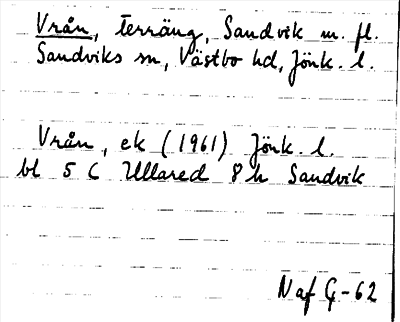 Vrån, terräng, Sandvik m. fl.
Sandviks sn, Västbo hd, Jönk. l.
Vrån, ek (1961) Jönk. l.
bl 5 C Ullared 8 h Sandvik
N af G-62